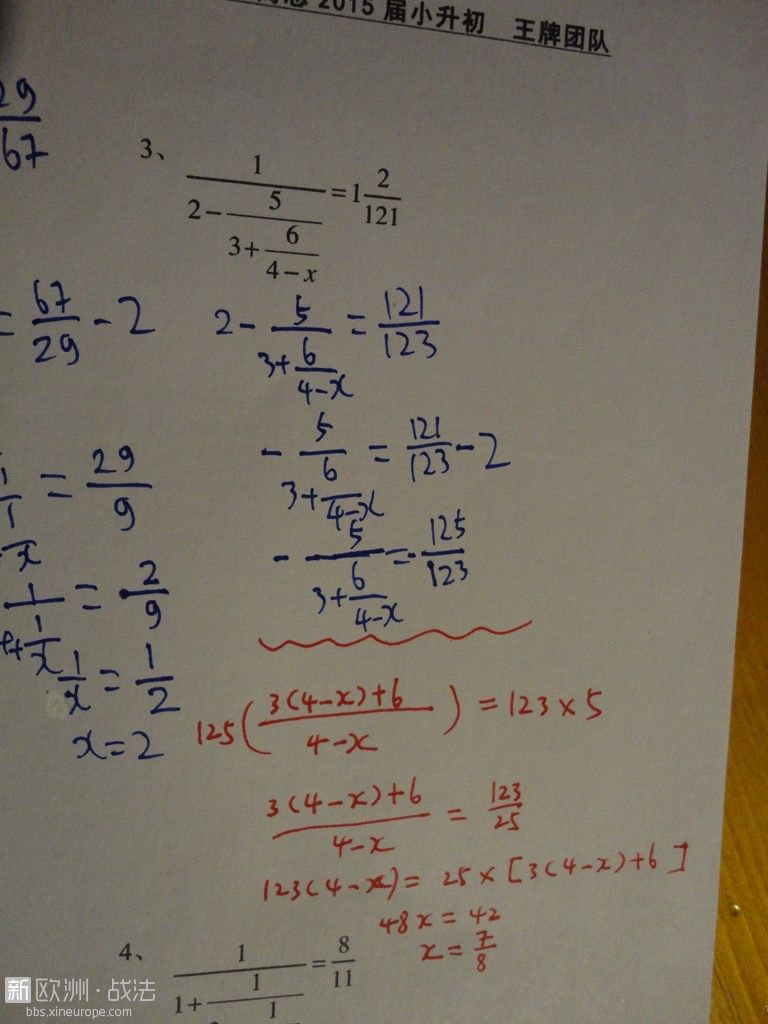 2015 届小升初 王牌团队
29/67
3、 1/(2-5/(3+6/(4-x))) = 1 2/121
= 67/29 - 2
2 - 5/(3+6/(4-x)) = 121/123
- 5/(3+6/(4-x)) = 121/123 - 2
= 29/9
- 5/(3+6/(4-x)) = - 125/123
= 2/9
1/x = 1/2
x = 2
125( (3(4-x)+6)/(4-x) ) = 123 × 5
(3(4-x)+6)/(4-x) = 123/25
123(4-x) = 25 × [3(4-x)+6]
48x = 42
x = 7/8
4、 1/(1+1/(1 = 8/11
新欧洲·战法
bbs.xineurope.com